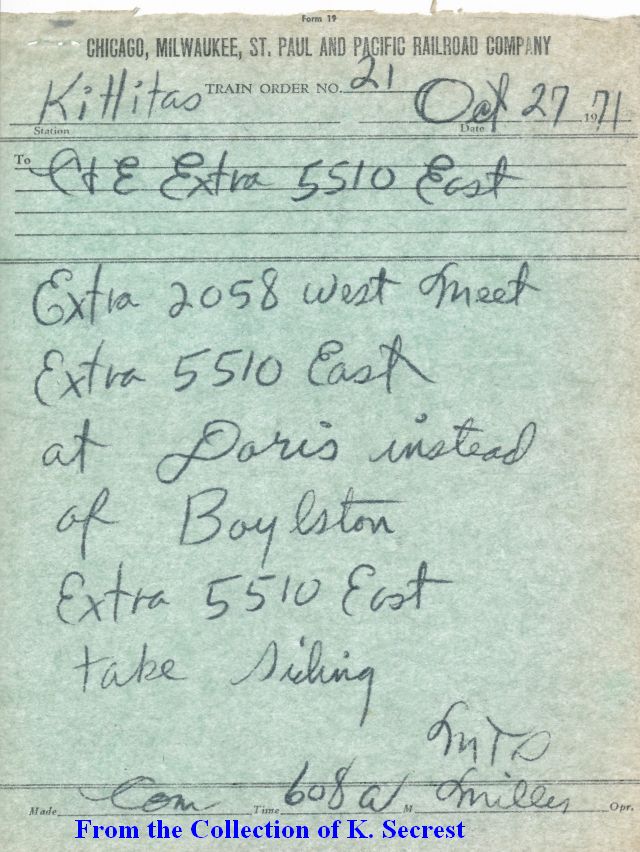 Form 19
CHICAGO, MILWAUKEE, ST. PAUL AND PACIFIC RAILROAD COMPANY
Kittitas TRAIN ORDER NO. 21 Oct 27 1971
Station Date
To C & E Extra 5510 East
Extra 2058 West meet
Extra 5510 East
at Doris instead
of Boylston
Extra 5510 East
take siding
MTS
Made Com Time 608 a M Miller Opr.
From the Collection of K. Secrest